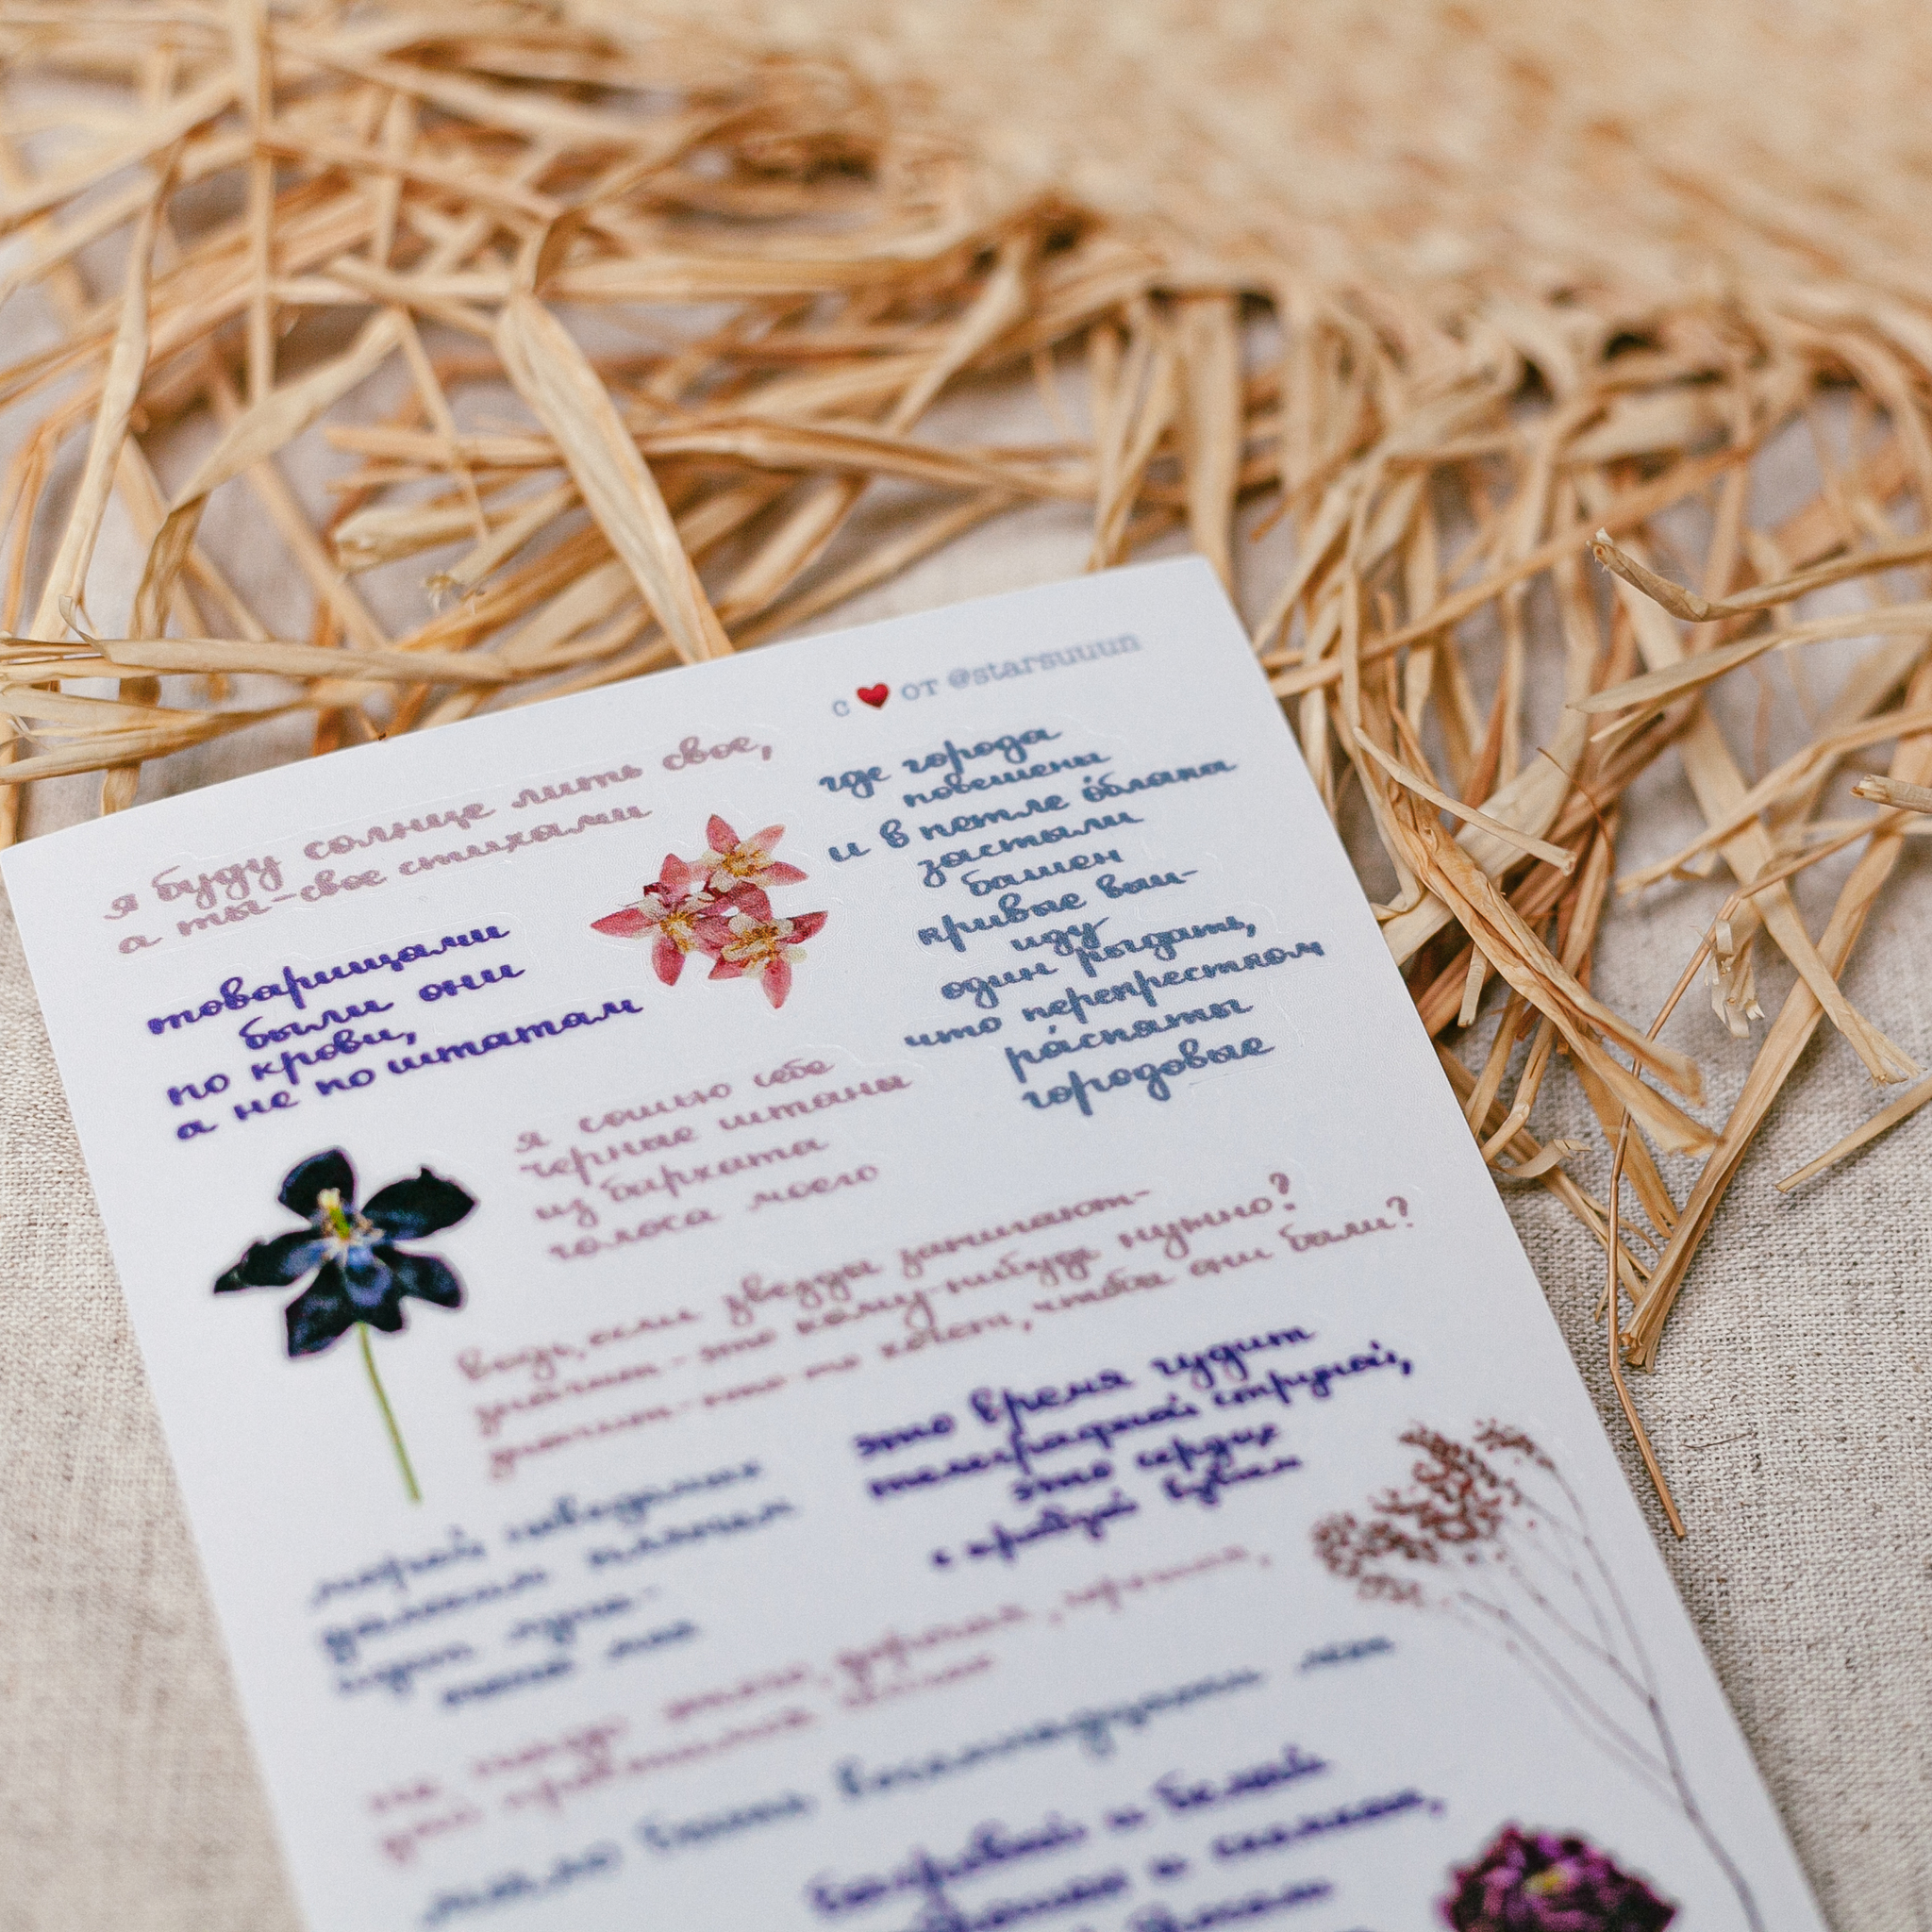 с ❤ от @starsuuun
я буду солнце лить свое,
а ты-свое стихами
где города
повешены
и в петле о́блака
застыли
башен
кривые выи-
иду
один рыдать,
что перекрестком
ра́спяты
городовые
товарищами
были они
по крови,
а не по штатам
я сошью себе
черные штаны
из бархата
голоса моего
ведь, если звезды зажигают-
значит-это кому-нибудь нужно?
значит-кто-то хочет, чтобы они были?
это время гудит
телеграфной струной,
это сердце
с правдой вдвоем
идет луна-
жена моя
не надо
дорогая, хорошая,
дай
Багровый и белый